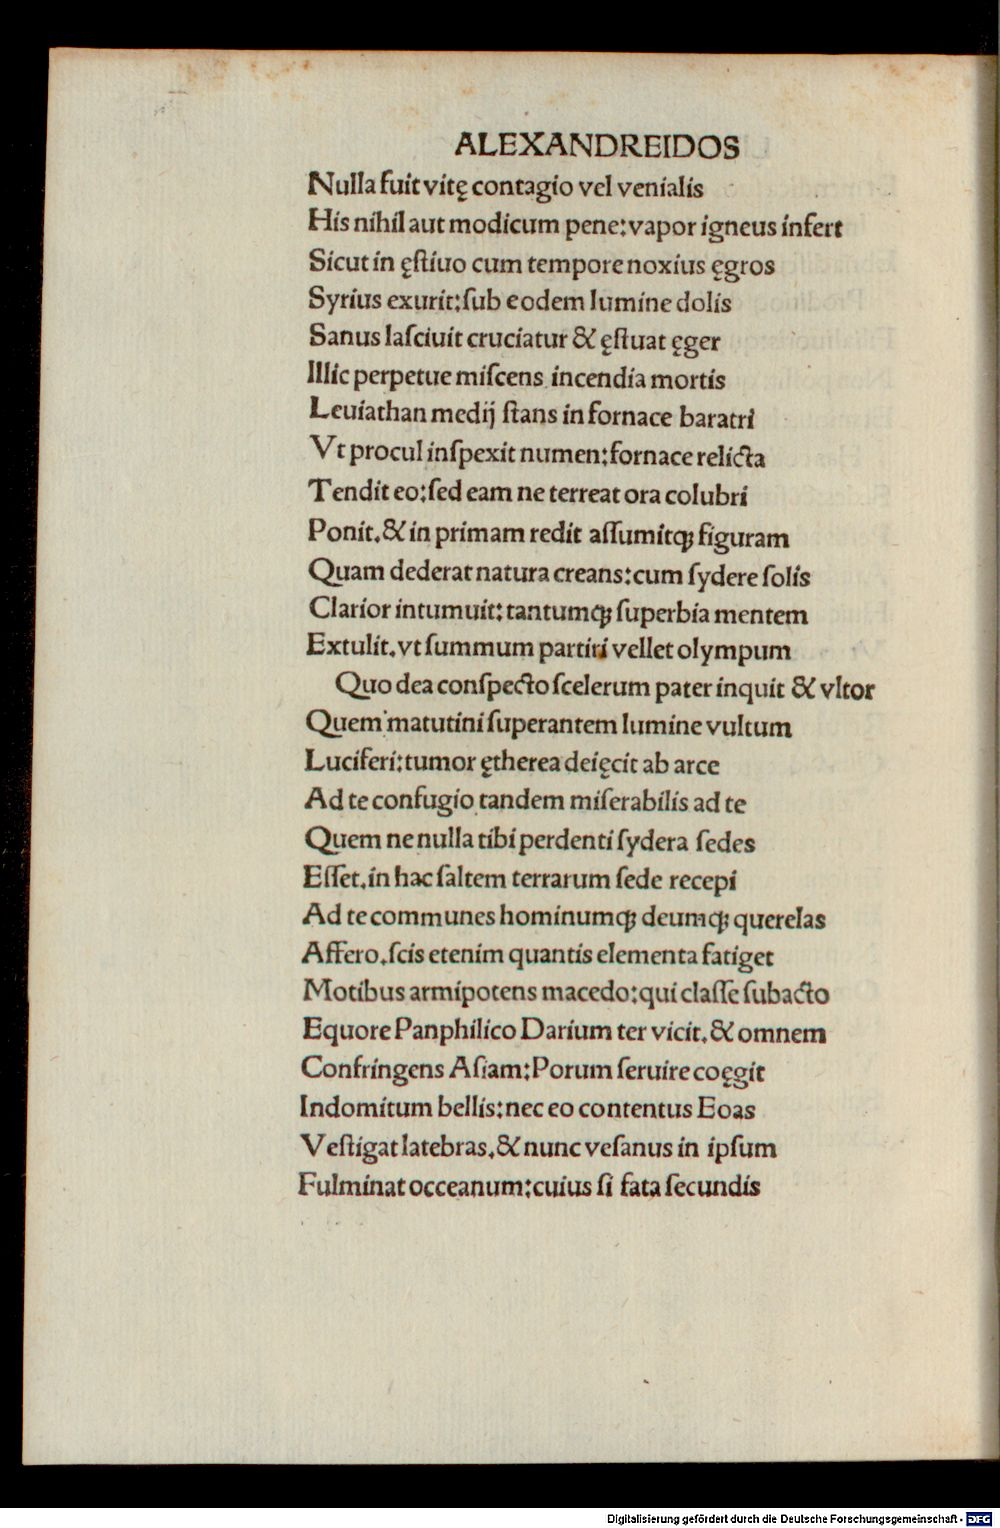 ALEXANDREIDOS
Nulla fuit vitę contagio vel venialis
His nihil aut modicum pene: vapor igneus infert
Sicut in ęſtiuo cum tempore noxius ęgros
Syrius exurit: ſub eodem lumine dolis
Sanus laſciuit cruciatur & ęſtuat ęger
Illic perpetue miſcens incendia mortis
Leuiathan medij ſtans in fornace baratri
Vt procul inſpexit numen: fornace relicta
Tendit eo: ſed eam ne terreat ora colubri
Ponit. & in primam redit aſſumitqꝫ figuram
Quam dederat natura creans: cum ſydere ſolis
Clarior intumuit: tantumqꝫ ſuperbia mentem
Extulit. vt ſummum partiri vellet olympum
Quo dea conſpecto ſcelerum pater inquit & vltor
Quem matutini ſuperantem lumine vultum
Luciferi: tumor ętherea deięcit ab arce
Ad te confugio tandem miſerabilis ad te
Quem ne nulla tibi perdenti ſydera ſedes
Eſſet. in hac ſaltem terrarum ſede recepi
Ad te communes hominumqꝫ deumqꝫ querelas
Affero. ſcis etenim quantis elementa fatiget
Motibus armipotens macedo: qui claſſe ſubacto
Equore Panphilico Darium ter vicit. & omnem
Confringens Aſiam: Porum ſeruire coęgit
Indomitum bellis: nec eo contentus Eoas
Veſtigat latebras. & nunc veſanus in ipſum
Fulminat occeanum: cuius ſi fata ſecundis
Digitalisierung gefördert durch die Deutsche Forschungsgemeinschaft - DFG